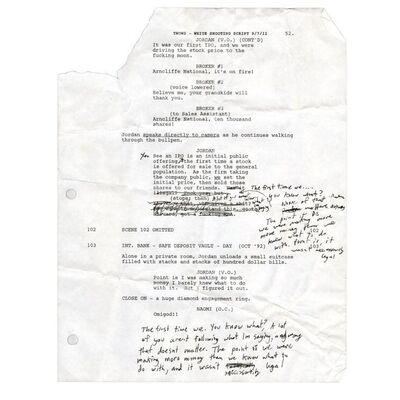 TWOWS - WHITE SHOOTING SCRIPT 9/7/12 52.
JORDAN (V.O.) (CONT'D)
It was our first IPO, and we were
driving the stock price to the
fucking moon.
BROKER #1
Arncliffe National, it's on fire!
BROKER #2
(voice lowered)
Believe me, your grandkids will
thank you.
BROKER #3
(to Sales Assistant)
Arncliffe National, ten thousand
shares!
Jordan speaks directly to camera as he continues walking
through the bullpen.
JORDAN
You See an IPO is an initial public
offering, the first time a stock
is offered for sale to the general
population. As the firm taking
the company public, we set the
initial price, then sold those
shares to our friends.
The first time we...
you know what?
(stops; then)
None of that
The point is
we were making more
money than we
knew what to
do
with. Point is, it
wasn't
legal
102 SCENE 102 OMITTED
103 INT. BANK - SAFE DEPOSIT VAULT - DAY (OCT '92)
Alone in a private room, Jordan unloads a small suitcase
filled with stacks and stacks of hundred dollar bills.
JORDAN (V.O.)
Point is I was making so much
money I barely knew what to do
with it. But I figured it out.
CLOSE ON - a huge diamond engagement ring.
NAOMI (O.C.)
Omigod!!
The first time we. You know what? A lot
of you arent following what I'm saying, anyway
that doesnt matter. The point is we were
making more money than we knew what to
do with, and it wasn't legal
necessarily